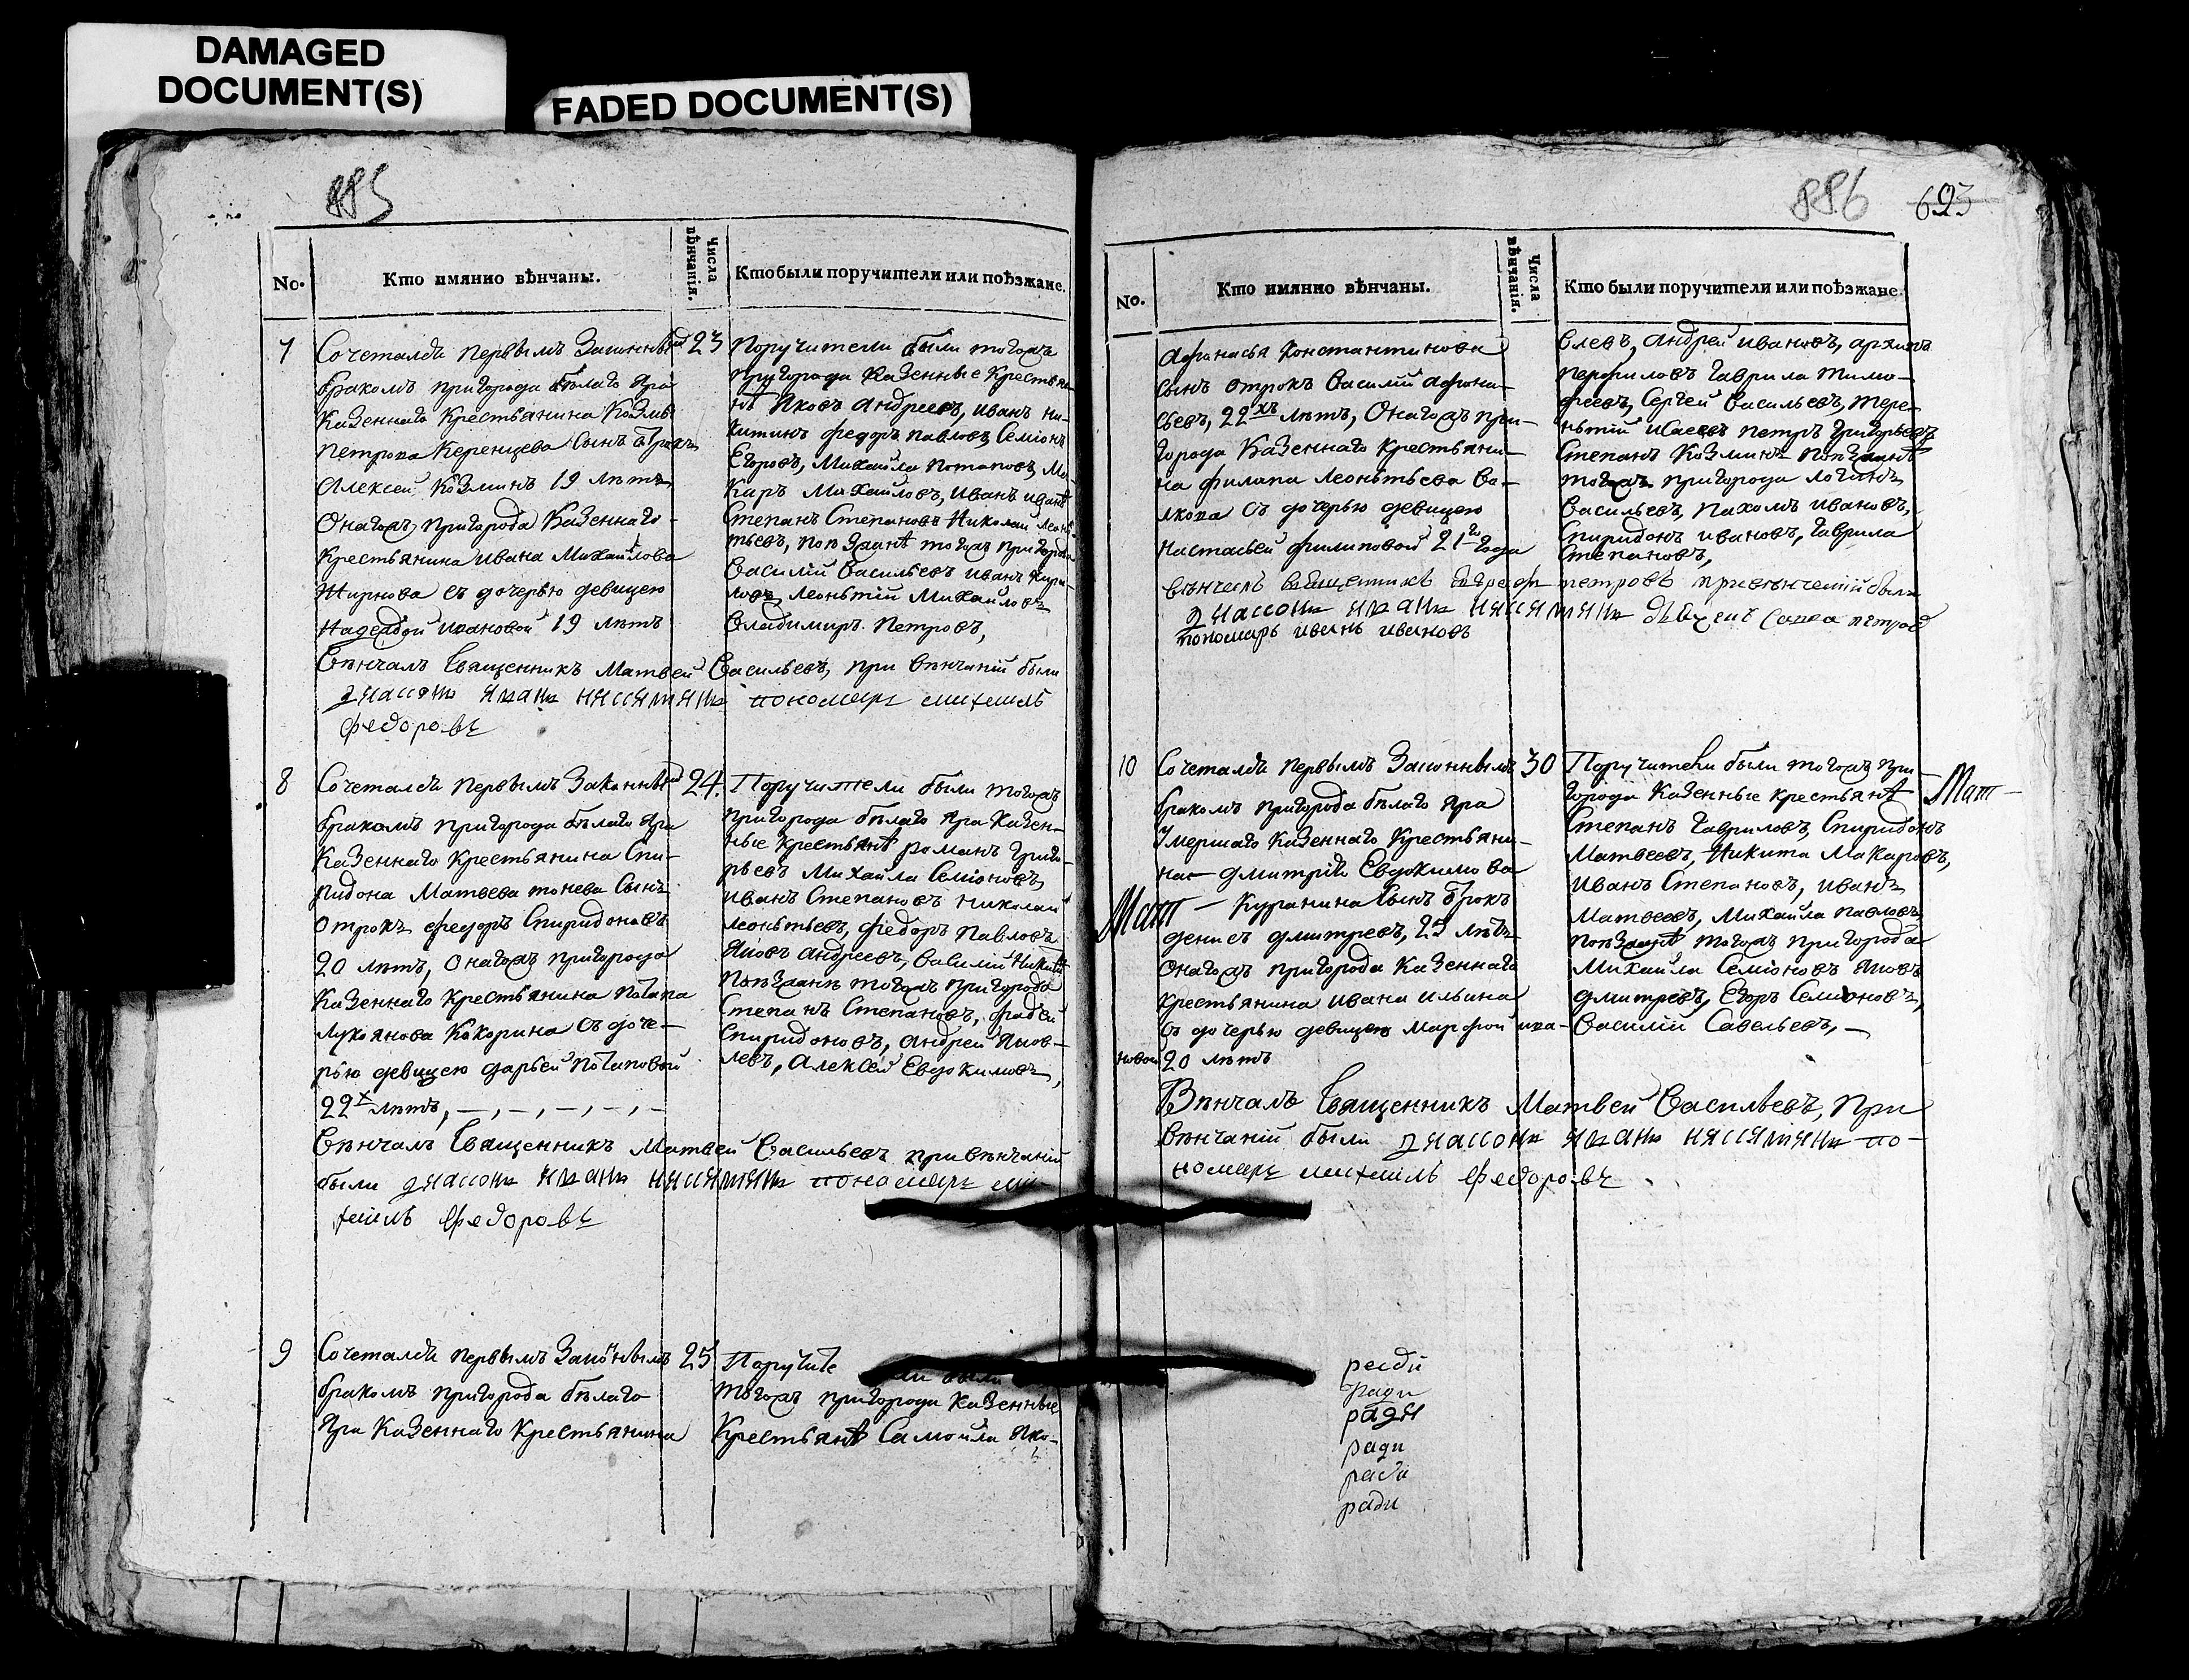 DAMAGED
DOCUMENT(S)
FADED DOCUMENT(S)
885
No.
Кто имянно вѣнчаны.
Числа
вѣнчанія.
Кто были поручители или поѣзжане.
7
Сочетался первымъ Законнымъ
бракомъ пригорода бѣлаго Яра
Казеннаго Крестьянина Козмы
Петрова Керенцева Сынъ отрокъ
Алексей Козминъ 19 лѣтъ
Онагожъ пригорода Казеннаго
Крестьянина Ивана Михайлова
Жирнова съ дочерью девицею
Надеждой Ивановой 19 лѣтъ
23
Поручители были тогожъ
пригорода Казенные Крестьян
нѣ Яковъ Андреевъ, Иванъ Ни-
китинъ федоръ Павловъ, Семіонъ
Егоровъ, Михайла Потаповъ, Ма-
каръ Михайловъ, Иванъ
Степанъ Степановъ Николай Леон
тьевъ, поѣзжанѣ тогожъ пригорода
Василій Васильевъ Иванъ
Леоньтій Михайловъ
Владимиръ Петровъ,
Вѣнчалъ Священникъ Матвей Васильевъ, при вѣнчаній были
пономарь михаилъ
федоровъ
8
Сочетался первымъ Законнымъ
бракомъ пригорода бѣлаго Яра
Казеннаго Крестьянина Спи-
ридона Матвева тонева Сынъ
отрокъ федоръ Спиридоновъ
20 лѣтъ, онагожъ пригорода
Казеннаго Крестьянина Потапа
Лукоянова Кокорина съ доче-
рью девицею дарьей Потаповой
22х лѣтъ, —, —, —, —, —
24.
Поручители были тогожъ
пригорода бѣлаго Яра Казен-
ные Крестьянѣ Романъ Григо-
рьевъ Михайла Семіоновъ,
Иванъ Степановъ Николай
Леоньтьевъ, федоръ Павловъ
Яковъ Андреевъ, Василій Никитинъ
Поѣзжанѣ тогожъ пригорода
Степанъ Степановъ, фадей
Спиридоновъ, Андрей Яков-
левъ, Алексей Евдокимовъ,
Вѣнчалъ Священникъ Матвей Васильевъ при вѣнчаній
были пономарь ми-
хаилъ федоровъ
9
Сочетался первымъ Законнымъ
бракомъ пригорода бѣлаго
Яра Казеннаго Крестьянина
25
Поручите ли были
тогожъ пригорода Казенные
Крестьянѣ Самойла Яко-
886 693
No.
Кто имянно вѣнчаны.
Числа
вѣнчанія.
Кто были поручители или поѣзжане.
Афонасья Константинова
сынъ отрокъ Василій Афона-
сьевъ, 22хъ лѣтъ, Онагожъ при-
города Казеннаго Крестьяни-
на филипа Леоньтьева Во-
лкова съ дочерью девицею
Настасьей филиповой 21го года
влевъ, Андрей Ивановъ, архипъ
перфиловъ Гаврила Тимо-
феевъ, Сергей Васильевъ, Тере-
ньтій Исаевъ Петръ Григорьевъ
Степанъ Козминъ Поѣзжанѣ
тогожъ пригорода Логинъ
Васильевъ, Пахомъ Ивановъ,
Спиридонъ Ивановъ, Гаврила
Степановъ,
вѣнчелъ священникъ петровъ привѣнченій были
петровъ
пономарь иванъ ивановъ
10
Сочетался первымъ Законнымъ
бракомъ пригорода бѣлаго Яра
Умершаго Казеннаго Крестьяни-
на— Дмитрія Евдокимова
Мат — Куранина Сынъ отрокъ
денисъ дмитревъ, 25 лѣтъ
Онагожъ пригорода Казеннаго
крестьянина Ивана Ильина
съ дочерью девицею Марфой ива-
новой 20 лѣтъ
30
Поручители были тогожъ при-
города Казенные крестьянѣ
Мат —
Степанъ Гавриловъ, Спиридонъ
Матвеевъ, Никита Макаровъ,
Иванъ Степановъ, Иванъ
Матвеевъ, Михайла Павловъ
поѣзжанѣ тогожъ пригорода
Михайла Семіоновъ Яковъ
дмитревъ, Егоръ Семионовъ,
Василій Савельевъ, —
Вѣнчалъ Священникъ Матвей Васильевъ, При
вѣнчаній были по-
номарь михаилъ федоровъ
ради
ради
ради
ради
ради